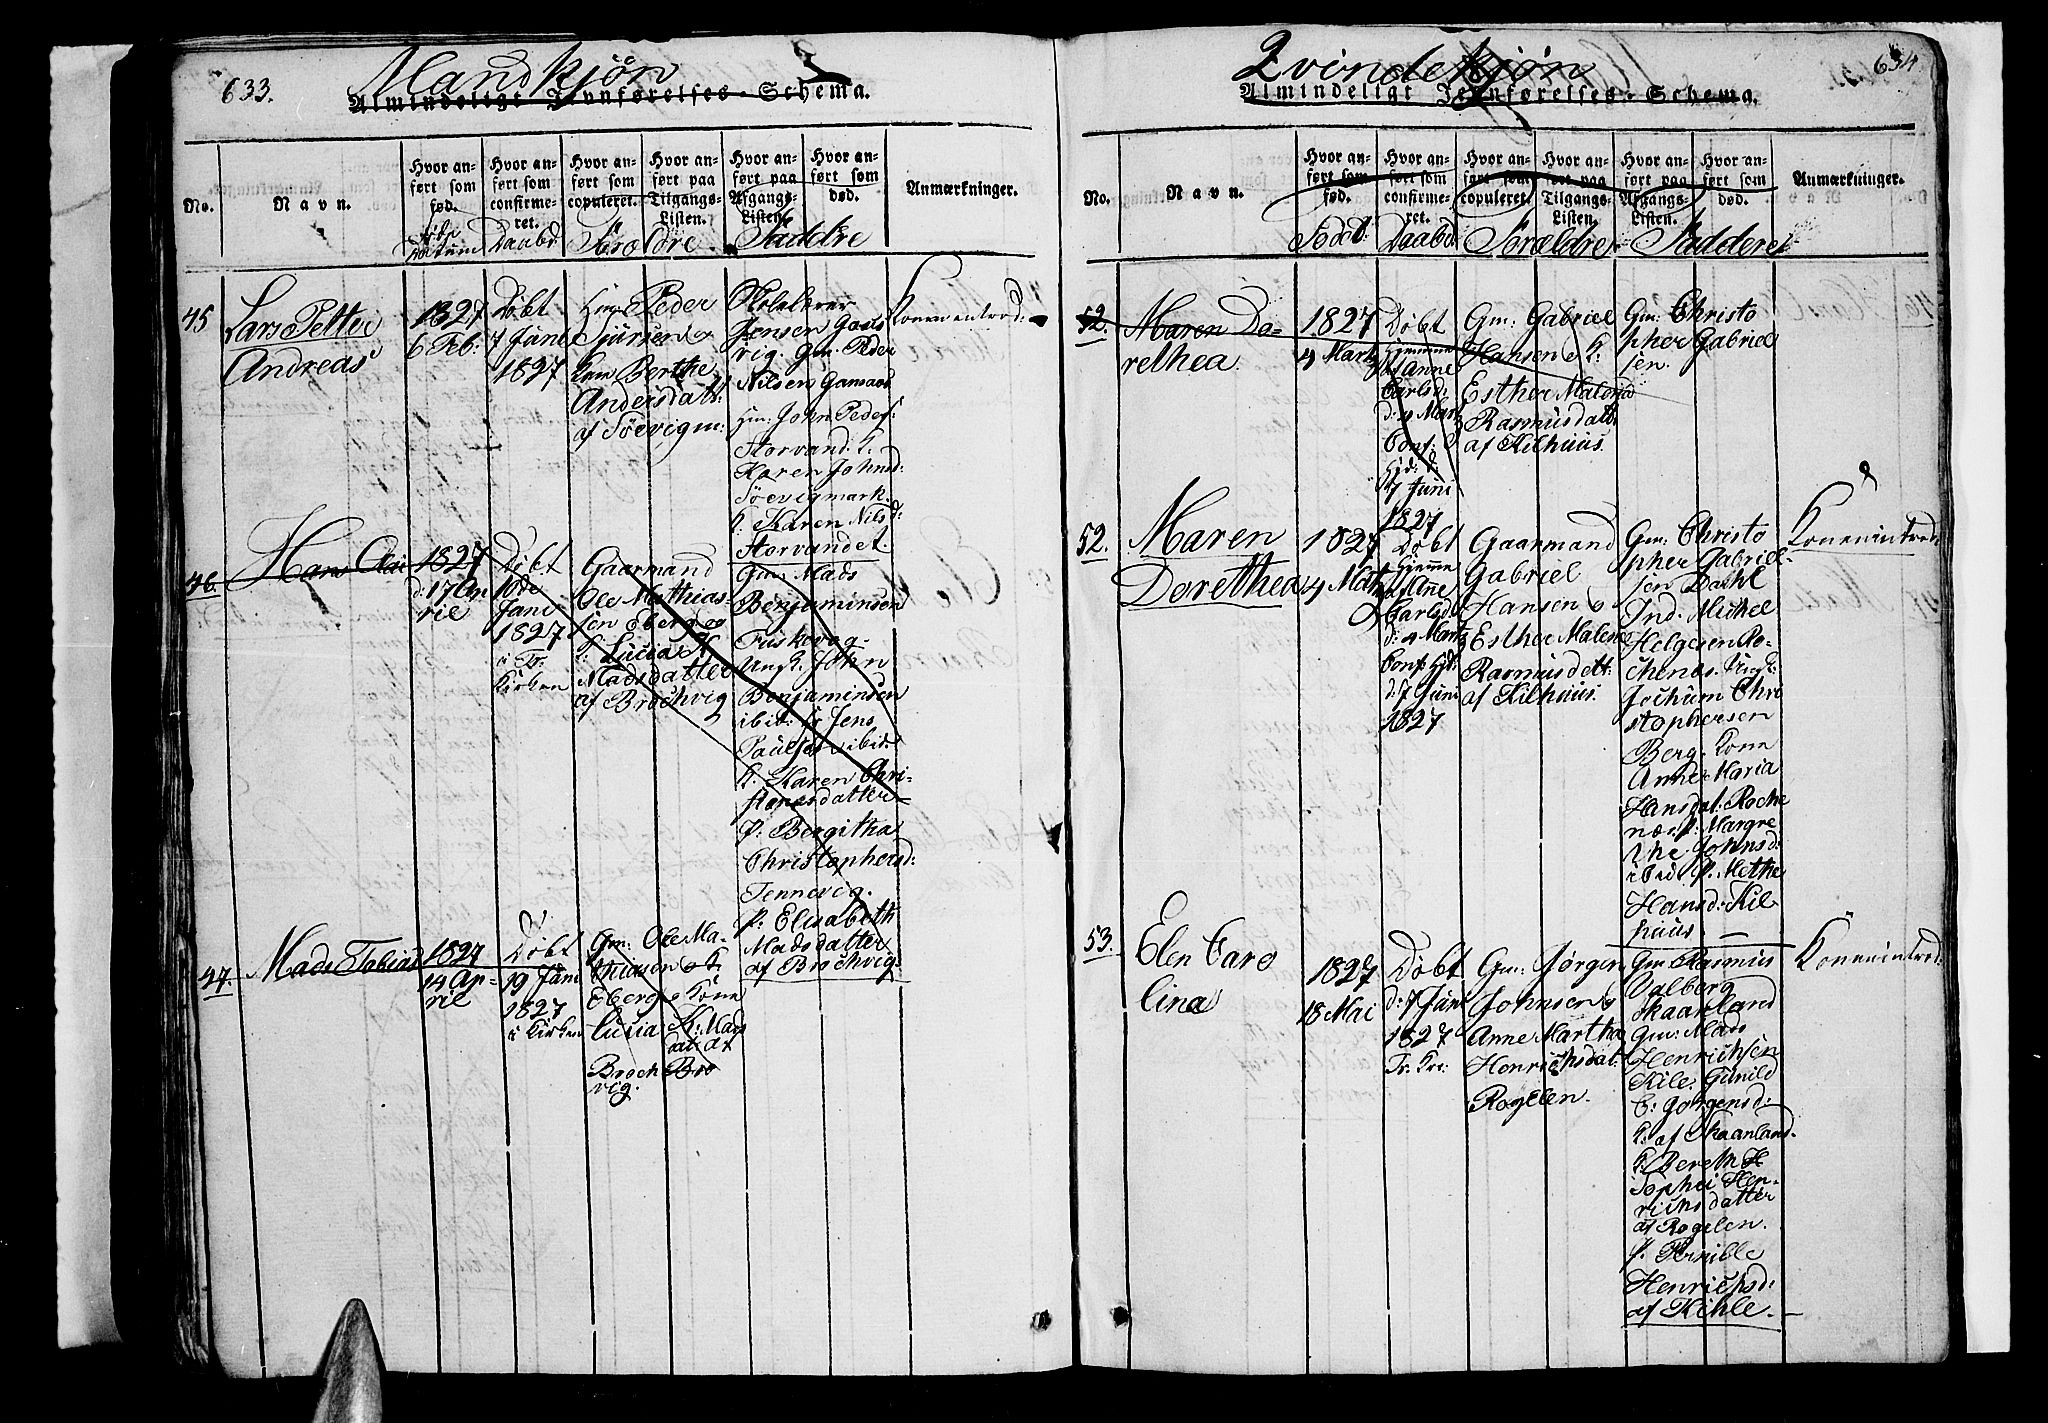 633.
Mandkjön
Almindeligt Jevnførelses-Schema.
No.
Navn.
Hvor an-
ført som
fød.
Hvor an-
ført som
confirme-
ret.
Hvor an-
ført som
copuleret.
Hvor an-
ført paa
Tilgangs-
Listen.
Hvor an-
ført paa
Afgangs-
Listen.
Hvor an-
ført som
død.
Anmærkninger.
Datum
Daabd
Foroldre
Faddre
45
Lars Petter
Andreas
1827
6 Feb:
Döbt
7 Juni
1827
Peder
Sjursen og
Berthe
Andersdatt:
af Söevigm:
Jensen Gaas
vig. Gm. Peder
Nilsen Gamaas
Hm: John Peders:
Storvand. K.
Karen Johnsd:
Söevigmark.
K. Karen Nilsd:
Storvandet.
Konenintrod:
46.
Hans Olai
1827
d: 17 Ap
ril
Döbt
10de
Juni
1827
i Tr.
Kirken
Gaarmand
Ole Mathias
sen Eberg og
K: Lucia H
Madsdatter
af Brochvig
Gm: Mads
Benjaminsen
Fuskevog
Ungk. John
Benjaminsen
ibid: Jens
Paulsen ibid.
K. Karen Chri-
stensdatter
P: Bergitha
Christophersd:
Tennevig.
P: Elisabeth
Madsdatter
af Brochvig
47.
Mads Tobias
1827
14 Ap-
ril
Döbt
19 Juni
1827
i Kirken
Gm: Ole Ma-
thiasen
Eberg og Kone
Lucia K: Mads
datt af
Broch Bro
vig.
634
Qvindekjön
Almindeligt Jevnførelses-Schema.
No.
Navn.
Hvor an-
ført som
fød.
Hvor an-
ført som
confirme-
ret.
Hvor an-
ført som
copuleret.
Hvor an-
ført paa
Tilgangs-
Listen.
Hvor an-
ført paa
Afgangs-
Listen.
Hvor an-
ført som
død.
Anmærkninger.
Föded:
Daabd
Forældre
Fadderer
52.
Maren Do-
rethea.
1827
4 Marts
Döbt
Hjemme
af Anne
Carlsd:
d: 4 Marts
Conf:
Hjd: d:
7 Juni
1827
Gm: Gabriel
Hansen og K:
Esther Malena
Rasmusdatt:
af Kilhuus.
Gm: Christo
pher Gabriel
sen.
52.
Maren
Dorethea
1827
4 Marts
Döbt
Hjemme
af Ane
Carlsd:
d: 4 Marts
Conf: Hjd:
d: 7 Juni
1827
Gaarmand
Gabriel
Hansen og
Esther Malene
Rasmusdatt:
af Kilhuus.
Gm: Christo
pher Gabriel-
sen Dachl
Ind: Michel
Helgesen Ro-
chenes. Ungk:
Jochum Chri
stophersen
Berg. Kone
Anne Maria
Hansdat: Roche
næs. P: Margre
the Johnsd:
ibid P. Methe
Hansd: Kil
huus.
Konenintrod:
53.
Elen Caro
lina
1827
18 Mai
Döbt
d: 7 Juni
1827
Tr. Kir:
Gm: Jörgen
Johnsen og
Anne Martha
Henrichsdat:
Rogelen.
Gm: Rasmus
Valberg
Skaanland
Gm: Mads
Henrichsen
Kile: Gunild
C: Jörgensd:
K: af Skaanland.
K: Bereth H
Sophei Hen-
richsdatter
af Rogelen.
P. Pernille
Henrichsd:
af Kihle.
Konenintrod: